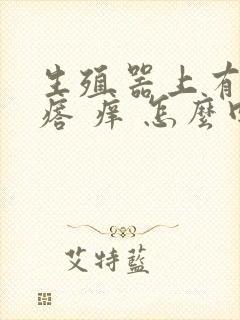 生殖器上有
瘩 痒 怎麼
艾特藍